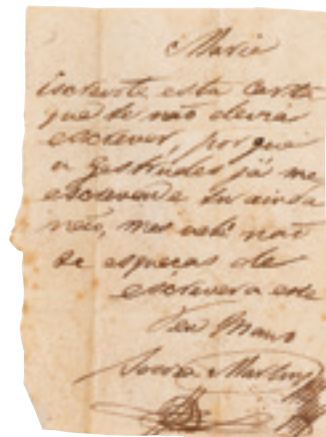 Maria
Escrevote esta carta
que te não devia
escrever, porque
a Gestrudes já me
escreveu e tu ainda
não, mas
não
te esqueças de
escrever a este
Teu Mano
Souza Martins